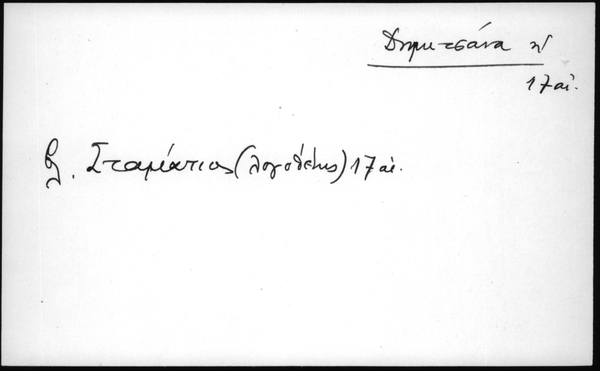 Δημητσάνα
17 αἰ.
βλ. Σταμάτιος (λογοθέτης) 17 αἰ.